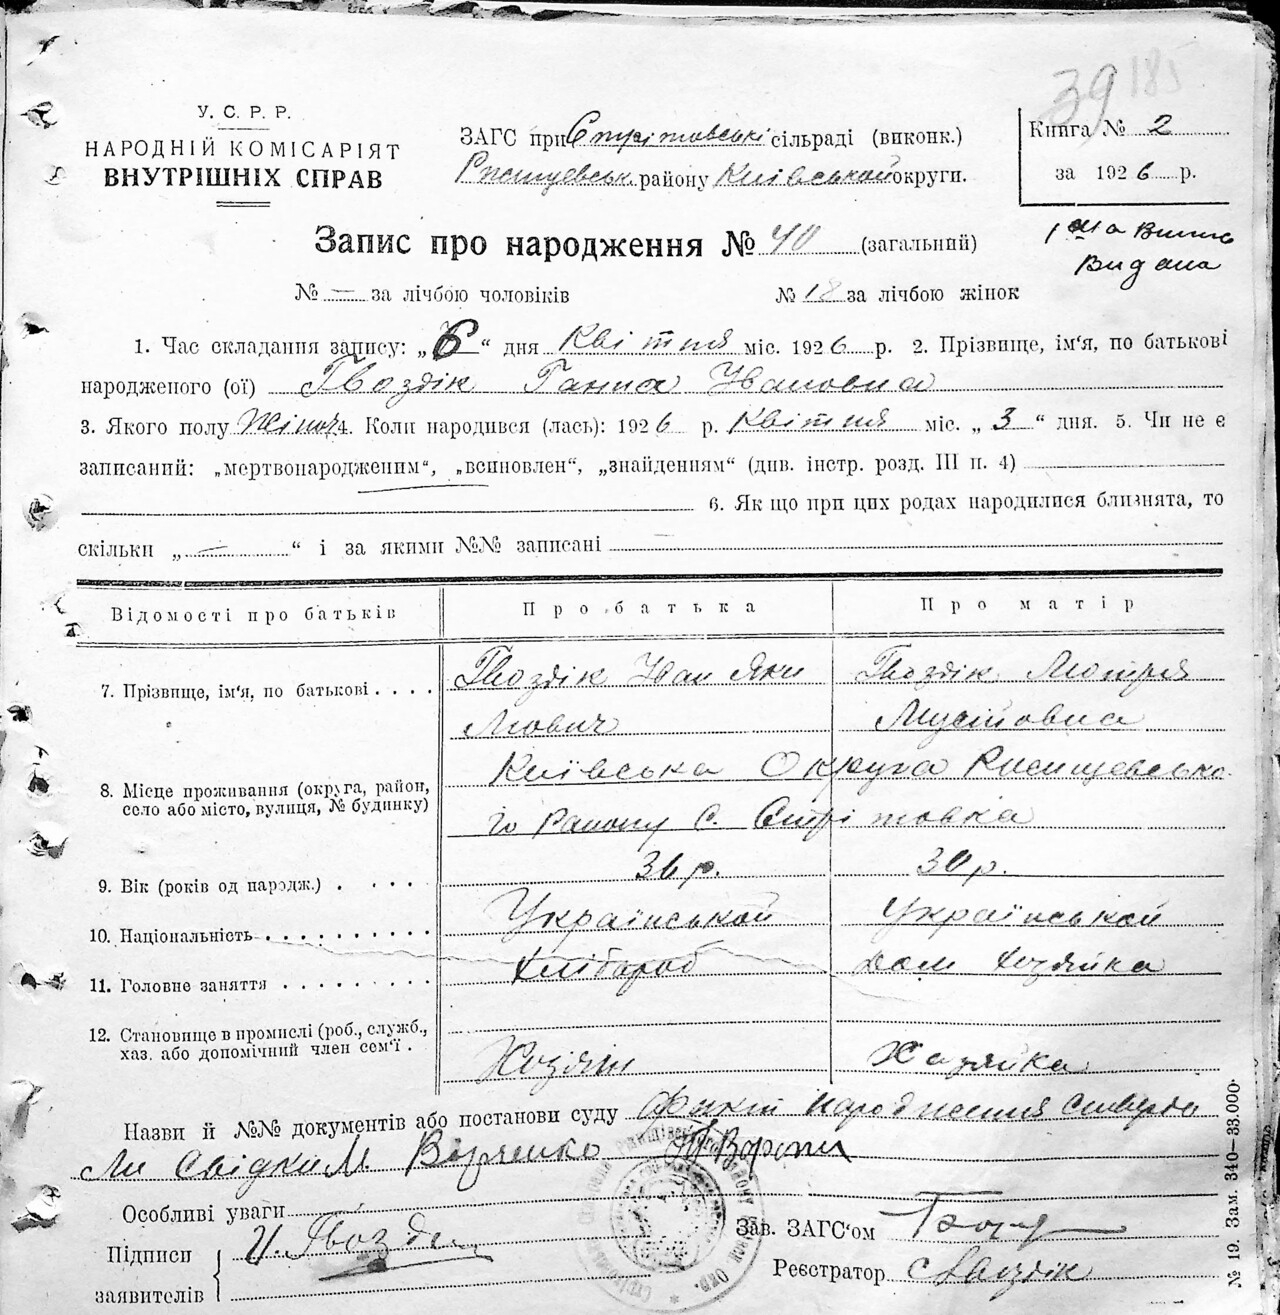 39 185
У. С. Р. Р.
НАРОДНІЙ КОМІСАРІЯТ
ВНУТРІШНІХ СПРАВ
ЗАГС при Стрітовські сільраді (виконк.)
Ржищевськ. району Київської округи.
Книга № 2
за 1926 р.
Видана
Запис про народження № 40 (загальний)
№ — за лічбою чоловіків № 18 за лічбою жінок
1. Час складання запису: „6“ дня Квітня міс. 1926 р. 2. Прізвище, ім'я, по батькові
народженого (ої) Гвоздік Ганна Івановна
3. Якого полу Жіноч 4. Коли народився (лась): 1926 р. Квітня міс. „3“ дня. 5. Чи не є
записаний: „мертвонародженим“, „всиновлен“, „знайденням“ (див. інстр. розд. III п. 4)
6. Як що при цих родах народилися близнята, то
скільки „—“ і за якими №№ записані —
Відомості про батьків Про батька Про матір
7. Прізвище, ім'я, по батькові . . . . Гвоздік Іван Яки Гвоздік Мотря
мович Мусіївна
8. Місце проживання (округа, район, село або місто, вулиця, № будинку) Київська Округа Ржищевсько
го Району С. Стрітовка
9. Вік (років од народж.) . . . . . 36 р. 30 р.
10. Національність . . . . . . . . . . Української Української
11. Головне заняття . . . . . . . . . Хлібороб дом хозяйка
12. Становище в промислі (роб., служб.,
хаз. або допомічний член сем'ї . Хозяїн Хазяйка
Назви й №№ документів або постанови суду Факт народження стверди
ли свідками
Особливі уваги
Підписи
заявителів
И. Гвоздік
Зав. ЗАГС'ом
Реєстратор Гвоздік
№ 19. Зам. 340—33.000.